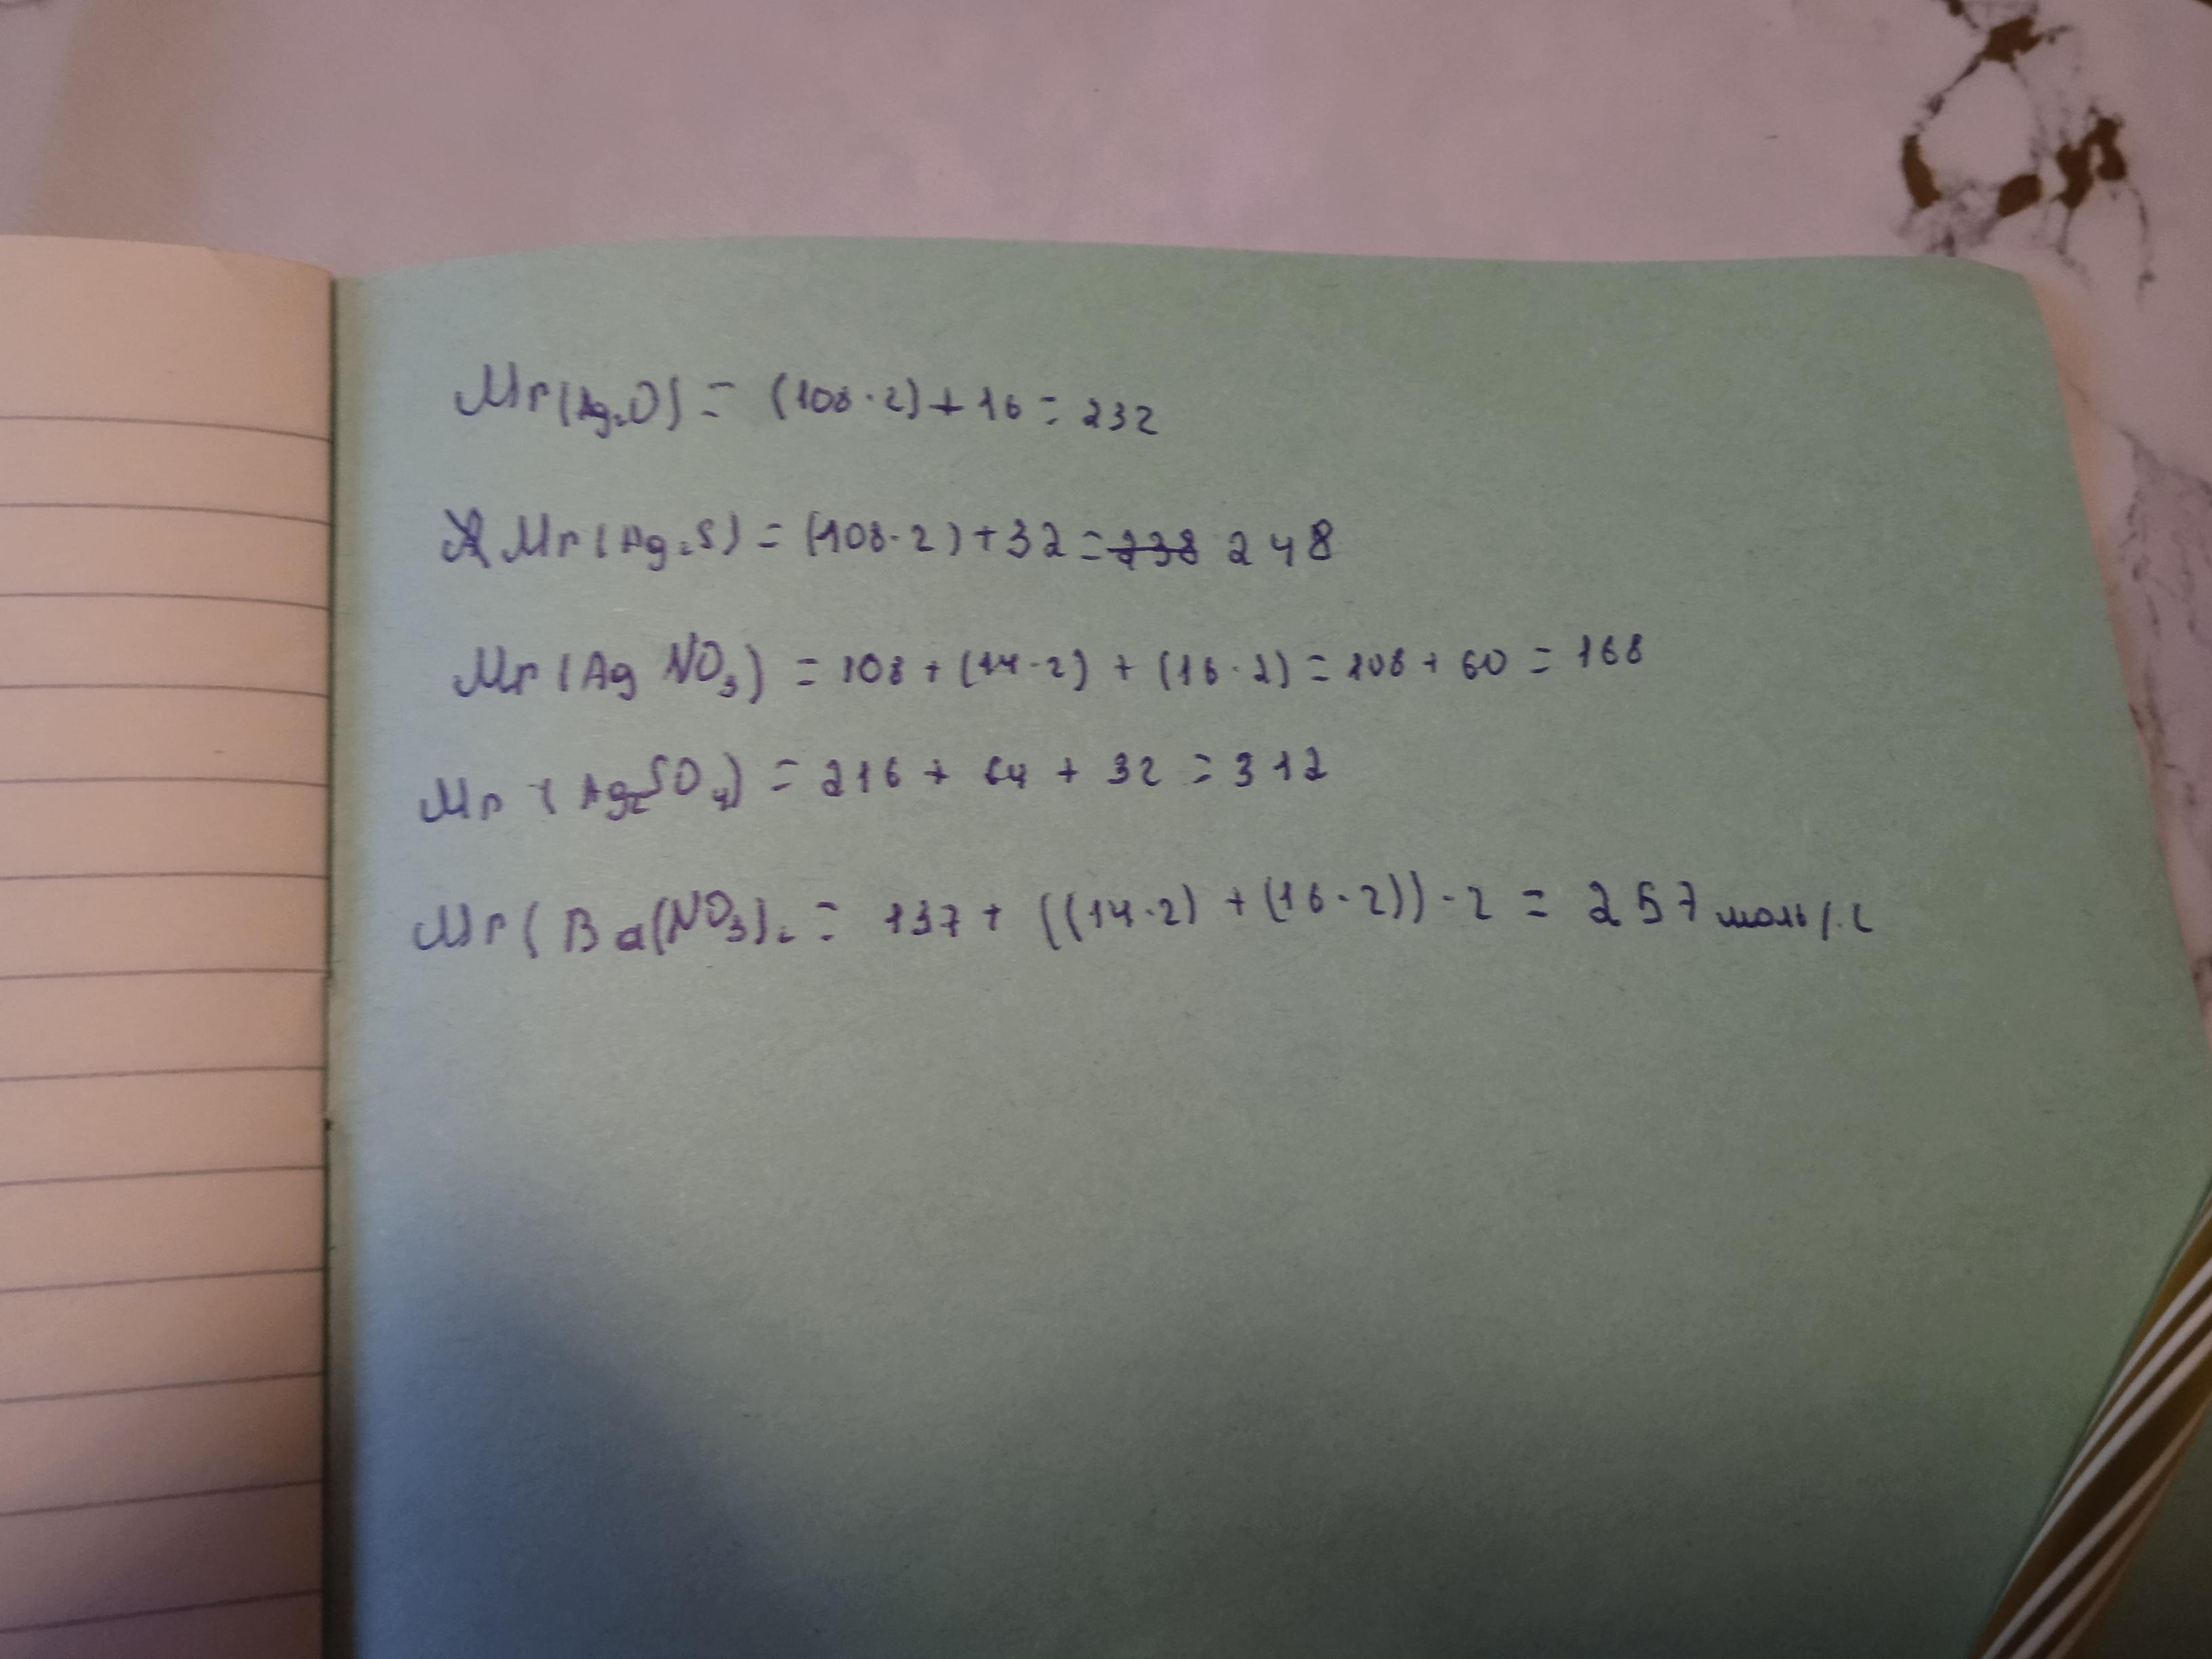 Mr(Ag₂O) = (108·2)+16 = 232
Mr(Ag₂S) = (108·2)+32 = ~~238~~ 248
Mr(AgNO₃) = 108+(14·2)+(16·2) = 108+60 = 168
Mr(Ag₂SO₄) = 216+64+32 = 312
Mr(Ba(NO₃)₂ = 137+((14·2)+(16·2))·2 = 257 моль/.г